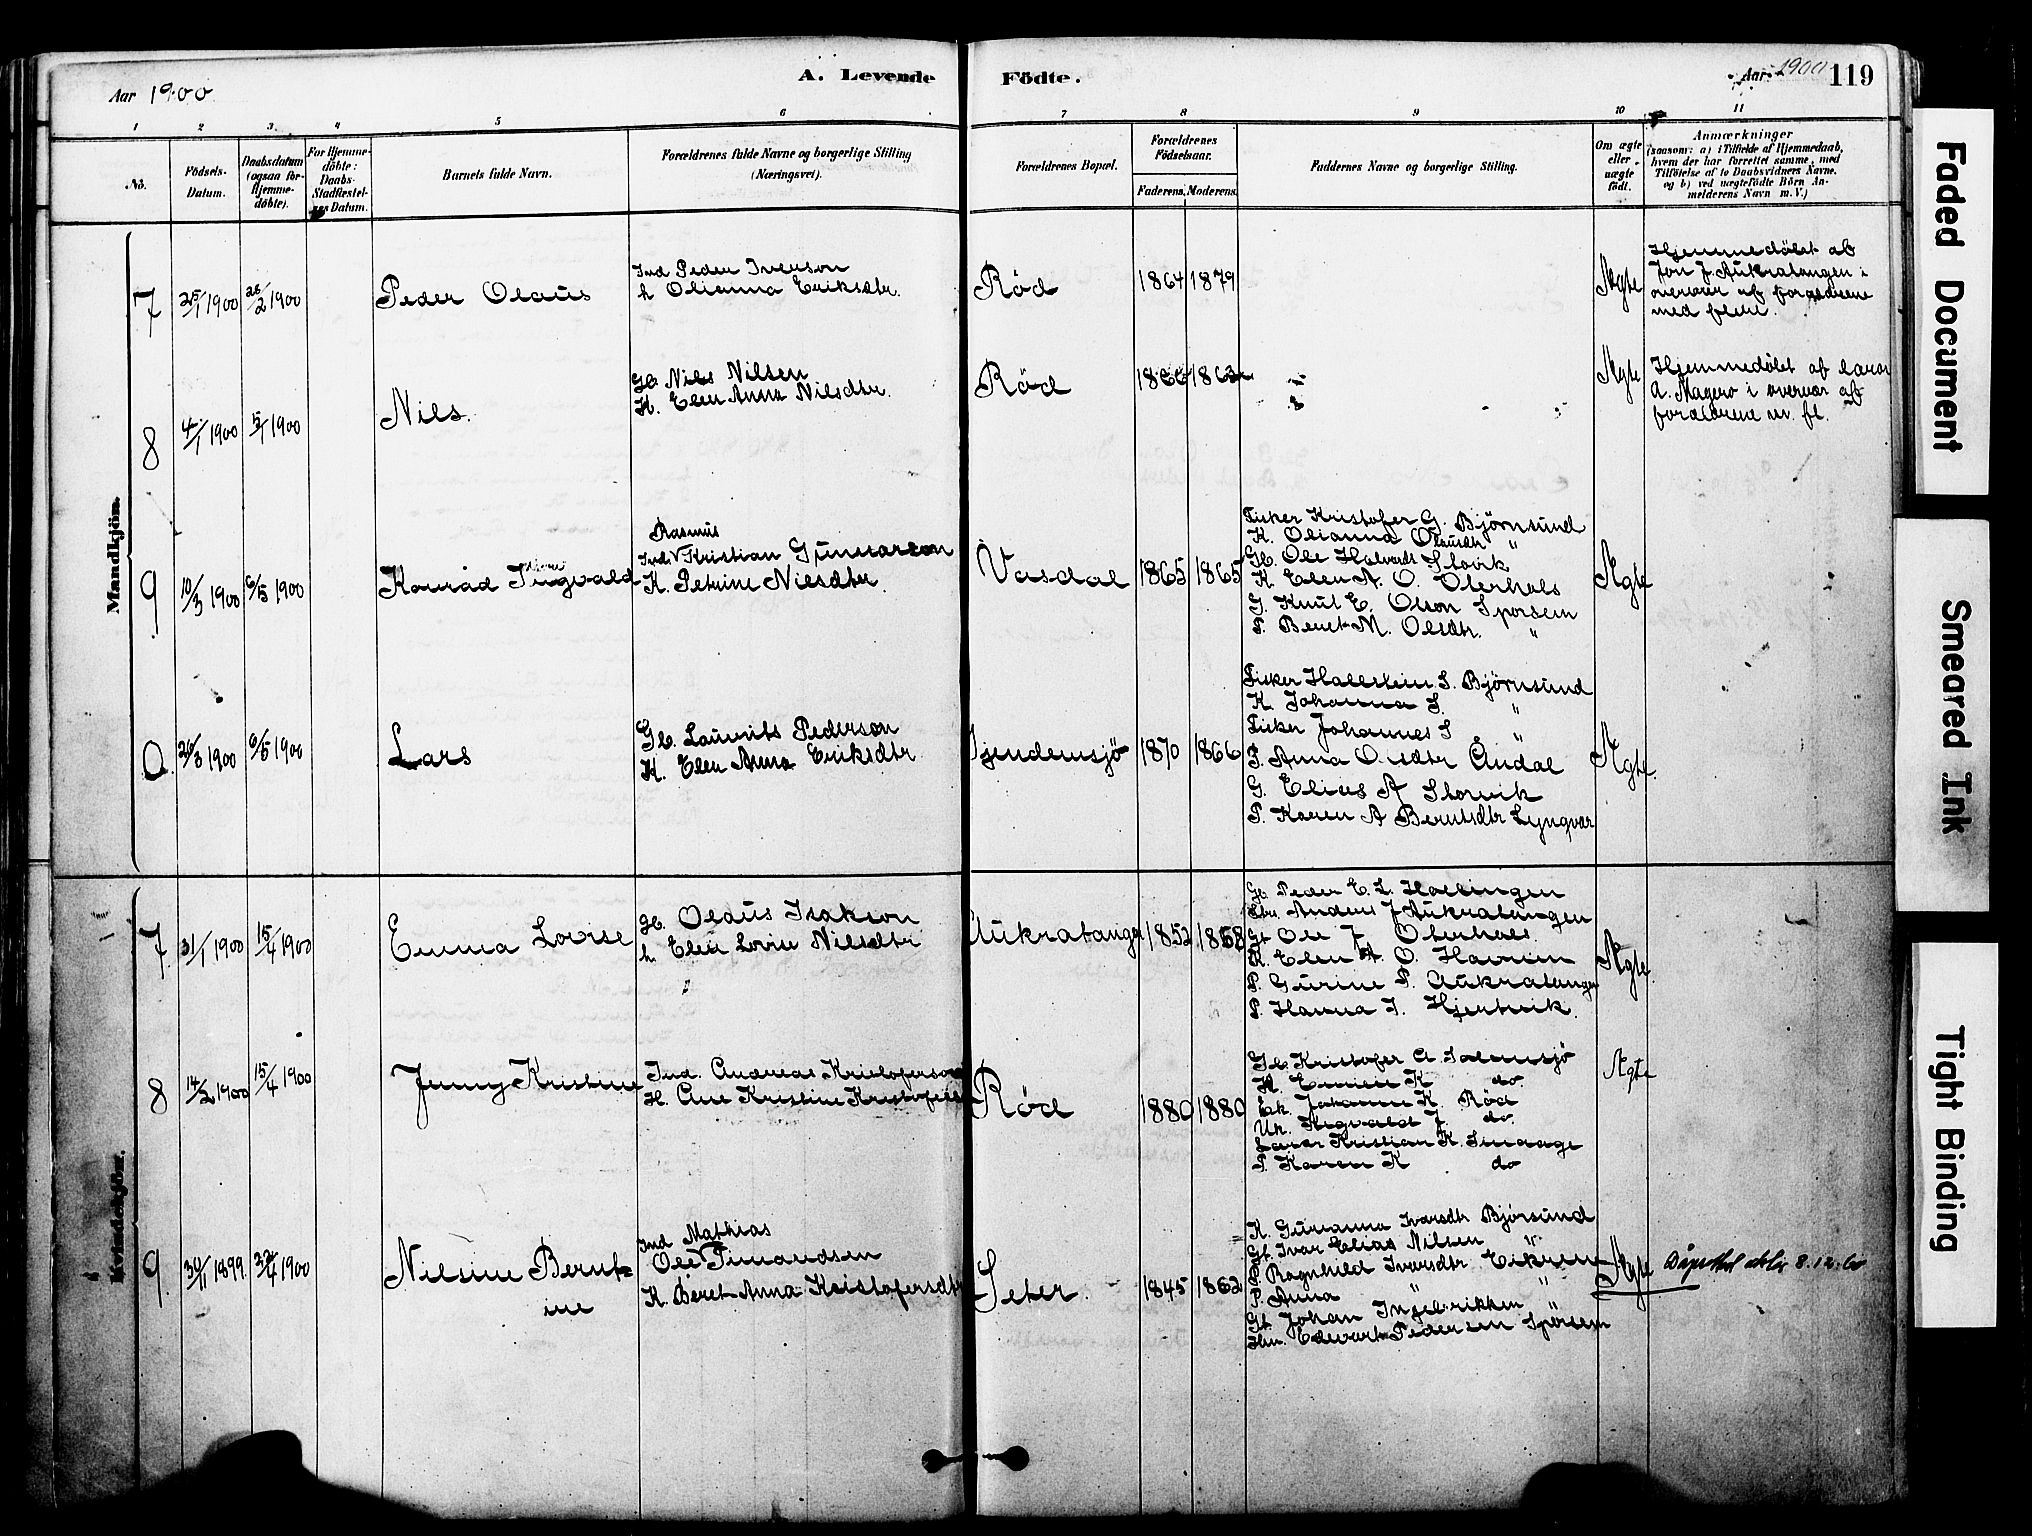 Aar 1900
A. Levende
Födte.
Aar 1900
119
1 2 3 4 5 6 7 8 9 10 11
No.
Födsels-Datum.
Daabsdatum (ogsaa for Hjemmedöbte).
For Hjemmedöbte: Daabs-Stadfæstelses Datum.
Barnets fulde Navn.
Forældrenes fulde Navne og borgerlige Stilling
(Næringsvei).
Forældrenes Bopæl.
Forældrenes Födselsaar.
Faderens. Moderens.
Faddernes Navne og borgerlige Stilling.
Om ægte eller uægte födt.
Anmærkninger
(saasom: a) i Tilfælde af Hjemmedaab,
hvem der har forrettet samme, med
Tilföielse af to Daabsvidners Navne.
og b) ved uægtefödte Börn Anmelderens Navn m. V.)
Mandkjön.
7
25/1 1900
26/2 1900
Peder Olaus
Ind Peder Iverson
h Olianna Eriksdtr.
Röd
1864
1879
Ægte
Hjemmedöbt af
Jon J. Aukratangen i
overvær af forældrene
med flere.
8
4/1 1900
5/1 1900
Nils.
Gb. Nils Nilsen
K. Elen Anna Nilsdtr.
Röd
1866
1863
Ægte
Hjemmedöbt af Lærer
A. Magerø i overvær af
forældrene m. fl.
9
10/3 1900
6/5 1900
Konrad Ingvald
Rasmus
Ind. Kristian Gunnarson
K. Petrine Nilsdtr
Vasdal
1865
1865
Fisker Kristofer G. Björnsund
K. Olianna Olausdtr "
Gb. Ole Halvards Storvik
K. Elen A. O. Oterhals
G. Knut E. Olson Sporsem
P. Beret M. Olsdtr. "
Ægte
0.
26/3 1900
6/5 1900
Lars
Gb. Laurits Pederson
K. Elen Anna Eriksdtr
Tjendemsjö
1870
1866
Fisker Hallstein S. Björnsund
K. Johanna S. "
Fisker Johannes S "
P. Anna O. sdtr Aandal
G. Elias A Storvik
P. Karen A Berntsdtr Lyngvær
Ægte.
Kvindekjön.
7.
31/1 1900
15/4 1900
Emma Lovise
Gb. Olaus Isakson
h. Elen Lovin Nilsdtr
"
Aukratange
1852
1858
Gb. Peder E. L. Hallingen
Anders J Aukratangen
Gb Ole J Oterhals.
K. Elen A. O. Havnin
P. Gurine P. Aukratangen
P. Hanna I. Hjertvik.
Ægte.
8
14/2 1900
15/4 1900
Jenny Kristine
Ind. Andreas Kristoferson
H. Ane Kristine Kristofers
Röd
1880
1880
Gb. Kristofer A. Julnesjö
H. K do.
Johanne K. Röd
Uk. J. do.
Lærer Kristian K. Smaage
P. Karen K do
Ægte
9.
30/11 1899.
1900
Nilsine Bernt-
ine
Ind Mathias
Ole Timandsen
K. Beret Anna Kristofersdtr
Seter.
1845
1862
K. Gurianna Ivarsdtr Björsund
Gb. Ivar Elias Nilsen "
P. Ragnhild Ivarsdtr Eikrem
P. Anna " "
Gb. Johan Ingebrikken
Edvart Pedersen Sporsem
Ægte
Dåpsattest 8.12.60
Faded Document
Smeared Ink
Tight Binding